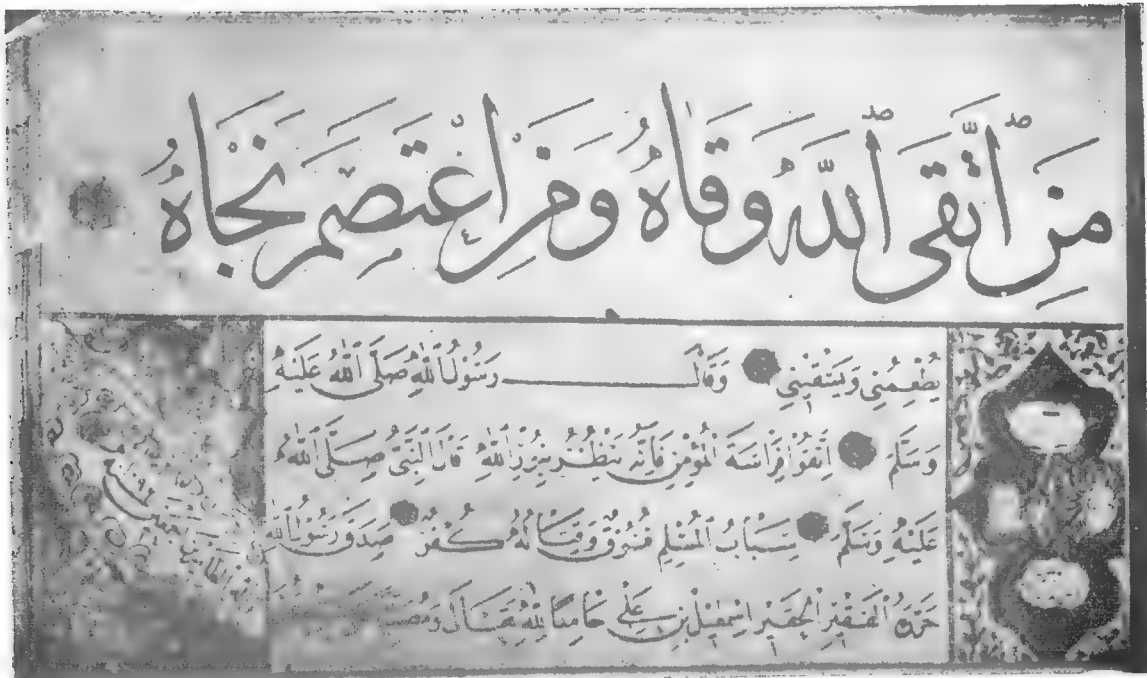 مَنِ ٱتَّقَى ٱللّٰهَ وَقَاهُ وَمَنِ اعْتَصَمَ نَجَّاهُ
يُطْعِمُنِي وَيَسْقِينِي وَقَالَ رَسُولُ اللّٰهِ صَلَّى اللّٰهُ عَلَيْهِ
وَسَلَّمَ اِتَّقُوا فِرَاسَةَ الْمُؤْمِنِ فَاِنَّهُ يَنْظُرُ بِنُورِ اللّٰهِ قَالَ النَّبِيُّ صَلَّى اللّٰهُ
عَلَيْهِ وَسَلَّمَ سِبَابُ الْمُسْلِمِ فُسُوقٌ وَقِتَالُهُ كُفْرٌ صَدَقَ رَسُولُ اللّٰهِ
حَرَّرَهُ الْفَقِيرُ الْحَقِيرُ اِسْمٰعِيلُ بْنُ عَلِي حَامِدًا لِلّٰهِ تَعَالَى